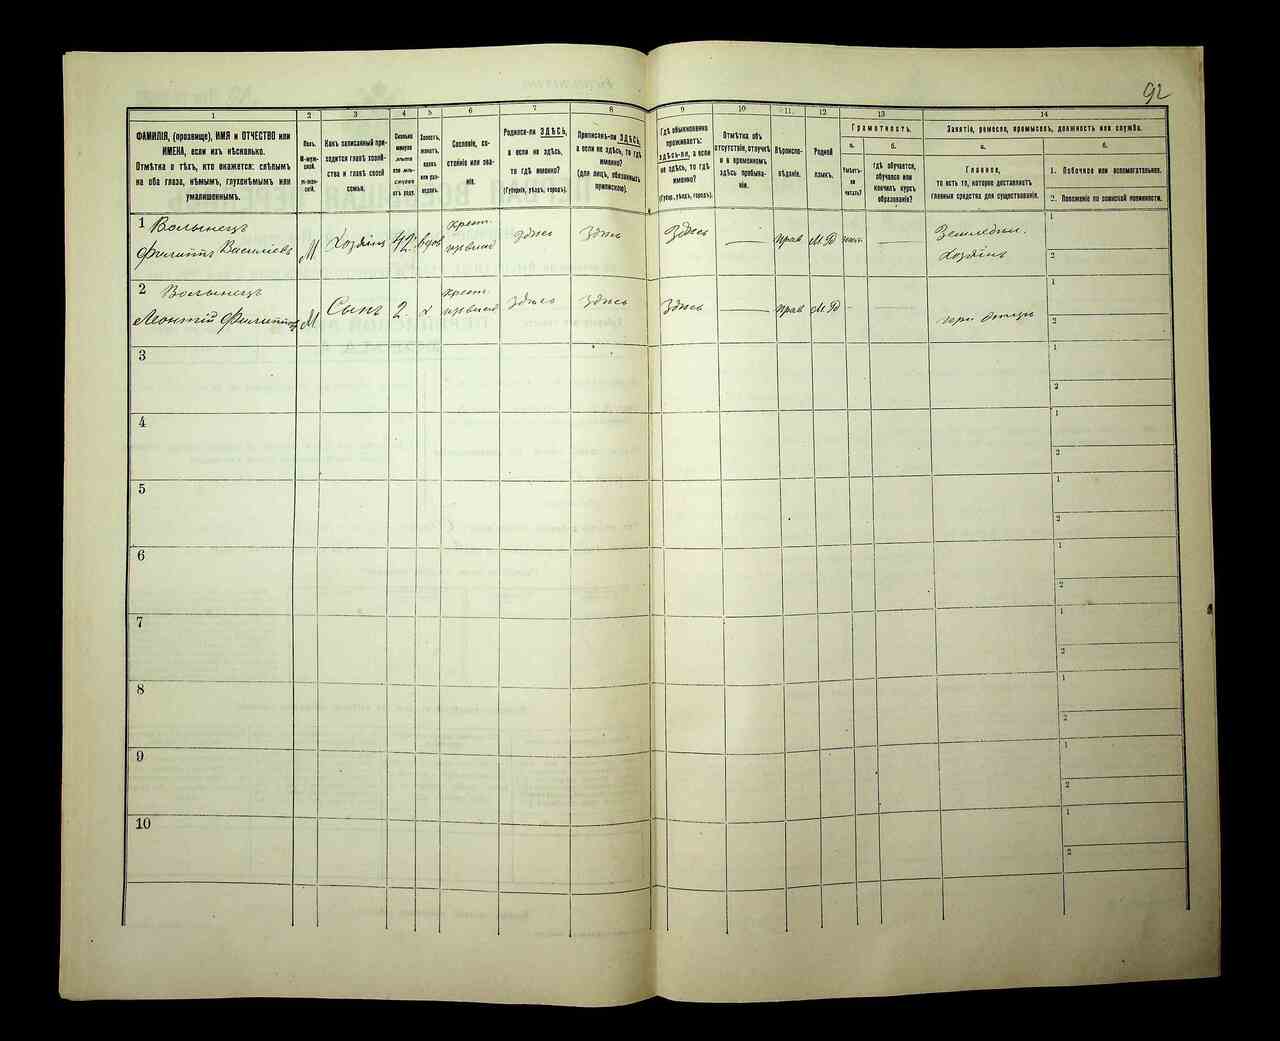 92
1
2
3
4
5
6
7
8
9
10
11.
12
13
14
ФАМИЛІЯ, (прозвище), ИМЯ и ОТЧЕСТВО или
ИМЕНА, если ихъ нѣсколько.
Отмѣтка о тѣхъ, кто окажется: слѣпымъ
на оба глаза, нѣмымъ, глухонѣмымъ или
умалишеннымъ.
Полъ.
М-муж-
ской.
Ж-жен-
скій.
Какъ записанный при-
ходится главѣ хозяй-
ства и главѣ своей
семьи.
Сколько
минуло
лѣтъ
или мѣ-
сяцевъ
отъ роду.
Холостъ,
женатъ,
вдовъ
или раз-
веденъ.
Сословіе, со-
стояніе или зва-
ніе.
Родился-ли ЗДѢСЬ,
а если не здѣсь,
то гдѣ именно?
(Губернія, уѣздъ, городъ).
Приписанъ-ли ЗДѢСЬ,
а если не здѣсь, то гдѣ
именно?
(для лицъ, обязанныхъ
припискою).
Гдѣ обыкновенно
проживаетъ:
здѣсь-ли, а если
не здѣсь, то гдѣ
именно?
(Губер., уѣздъ, городъ).
Отмѣтка объ
отсутствіи, отлучкѣ
и о временномъ
здѣсь пребыва-
ніи.
Вѣроиспо-
вѣданіе.
Родной
языкъ.
Грамотность.
а.
б.
Умѣетъ-
ли
читать?
гдѣ обучается,
обучался или
кончилъ курсъ
образованія?
Занятія, ремесло, промыселъ, должность или служба.
а.
б.
Главное,
то есть то, которое доставляетъ
главныя средства для существованія.
1. Побочное или вспомогательное.
2. Положеніе по воинской повинности.
1 Волынецъ
Филиппъ Васильевъ М Хозяинъ 42 вдов Крест. Здѣсь Здѣсь Здѣсь — Прав М.Р —
Земледѣл.
Хозяинъ
1
2
2 Волынецъ
Леонтій Филиппов М Сынъ 2 х Крест. Здѣсь Здѣсь Здѣсь — Прав М.Р - —
при отцѣ
1
2
3
1
2
4
1
2
5
1
2
6
1
2
7
1
2
8
1
2
9
1
2
10
1
2